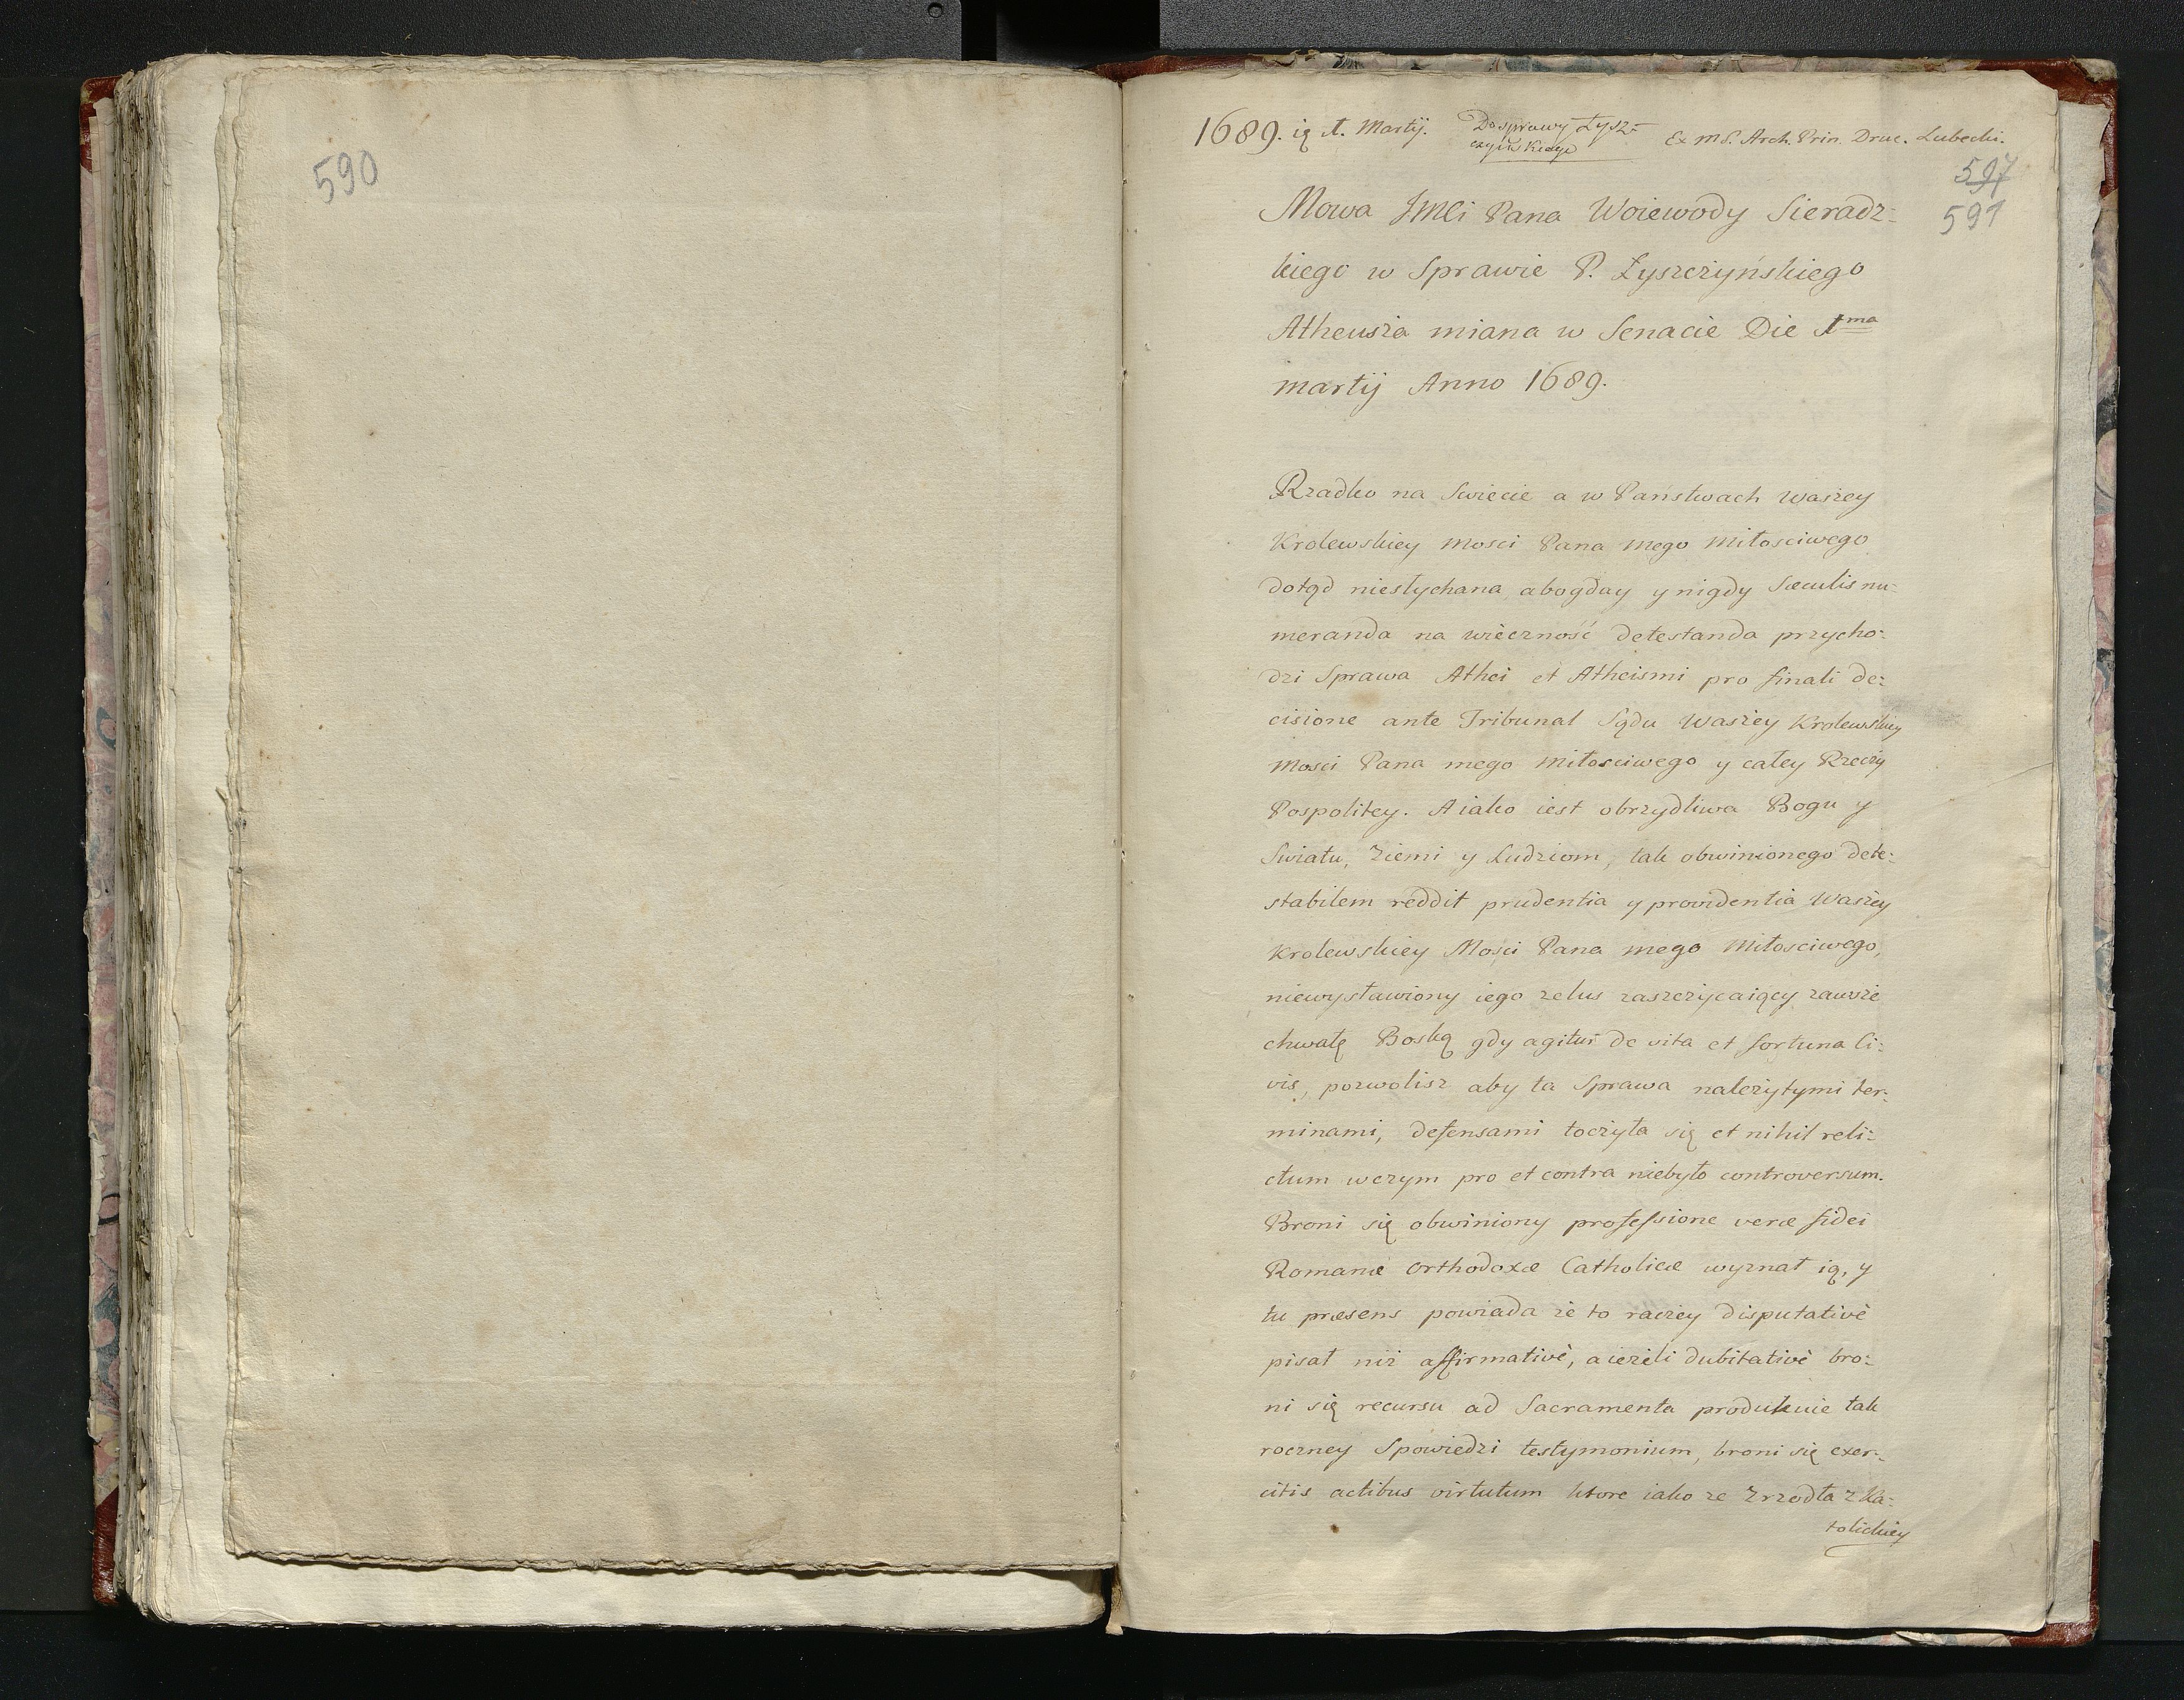 590
1689. ią 1. Martij. Do sprawy Łysz=
czyńskiego
Ex MS. Arch. Prin. Druc. Lubecki.
597
591
Mowa JMCi Pana Woiewody Sieradz=
kiego w Sprawie P. Łyszczyńskiego
Atheusza miana w Senacie Die 1ma
martij Anno 1689.
Rzadko na Swiecie a w Państwach Waszey
Krolewskiey Mosci Pana mego Miłosciwego
dotąd niesłychana, abogday y nigdy Sæculis nu=
meranda na wieczność detestanda przycho=
dzi Sprawa Athei et Atheismi pro finali de=
cisione ante Tribunal Sądu Waszey Krolewskiey
Mosci Pana mego Miłosciwego y całey Rzeczy
Pospolitey. A iako iest obrzydliwa Bogu y
Swiatu, Ziemi y Ludziom, tak obwinionego dete=
stabilem reddit prudentia y providentia Waszey
Krolewskiey Mosci Pana mego Miłosciwego,
niewysławiony iego zelus zaszczycaiący zawsze
chwałę Boską gdy agitur de vita et fortuna Ci=
vis, pozwolisz aby ta Sprawa należytymi ter=
minami, defensami toczyła się et nihil reli=
ctum wczym pro et contra niebyło controversum.
Broni się obwiniony professione veræ fidei
Romanæ Orthodoxæ Catholicæ wyznał ią, y
tu præsens powiada że to raczey disputativè
pisał niż affirmativè, a ieżeli dubitativè bro=
ni się recursu ad Sacramenta produkuie tak
roczney Spowiedzi testymonium, broni się exer=
citis actibus virtutum ktore iako ze Zrzodła z Ka=
tolickiey